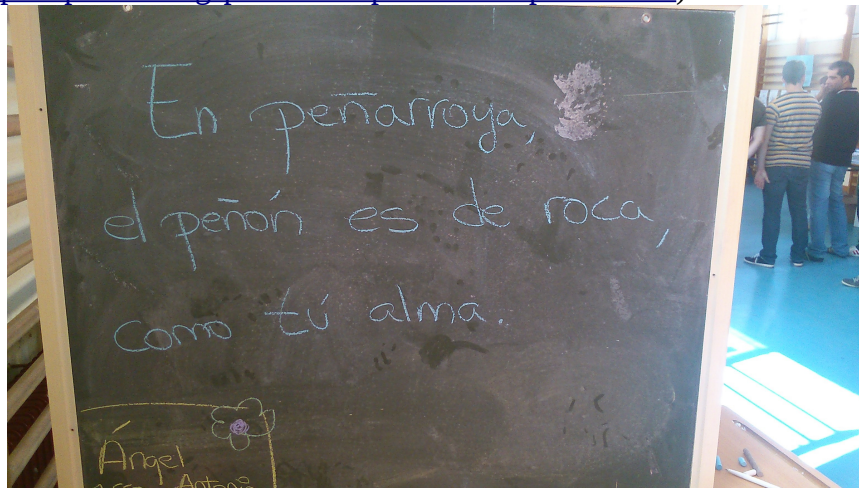 En peñarroya,
el peñón es de roca,
como tú alma.
Ángel
Antonio